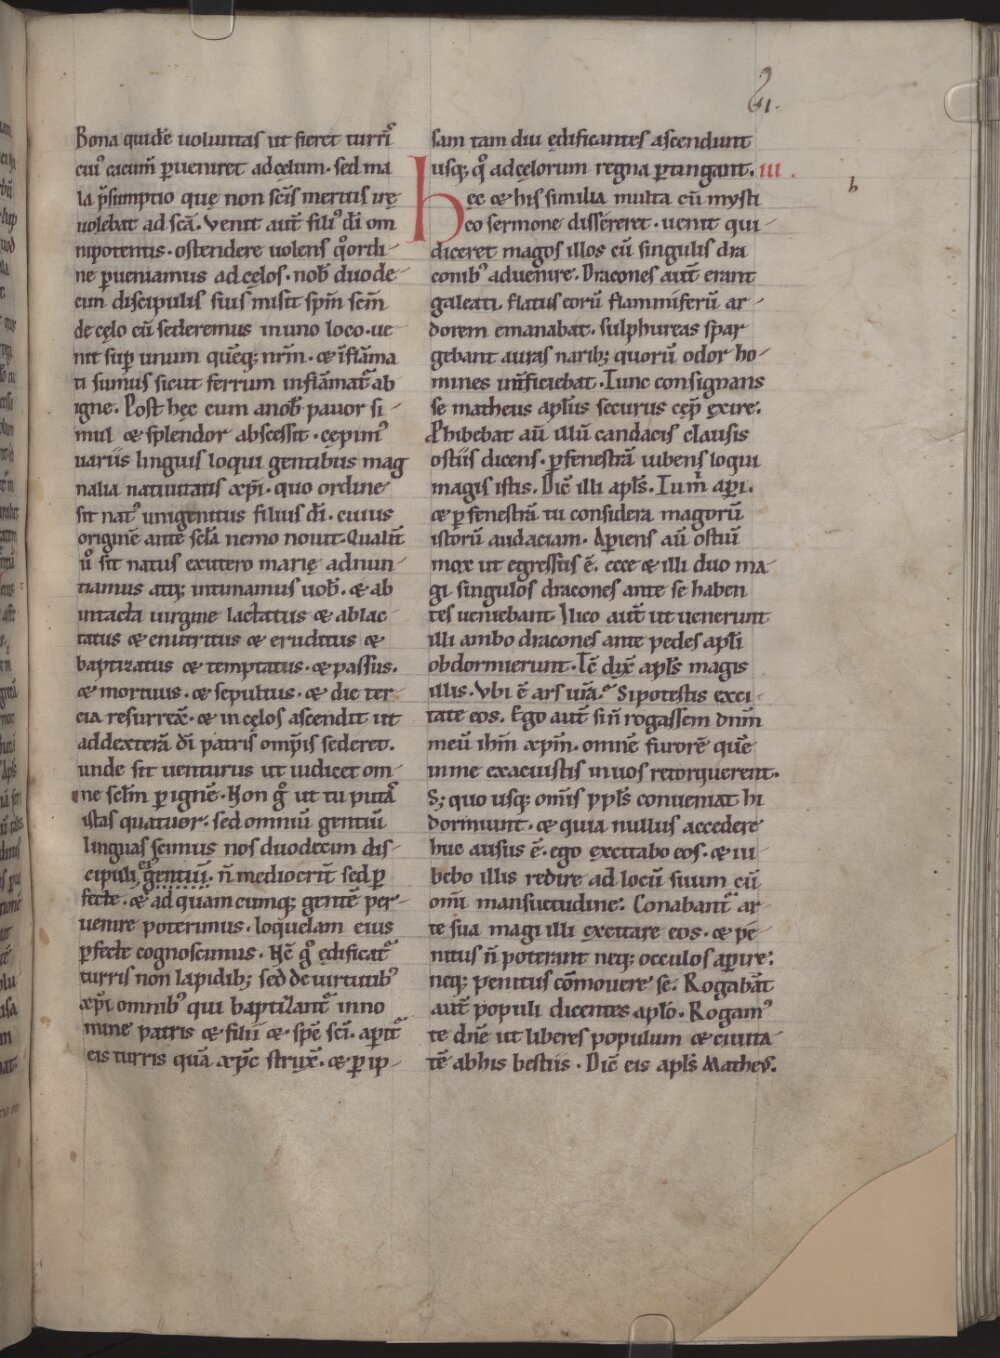 61.
Bona quidē uoluntas ut fieret turriᷤ
cuiꝰ cacum̄ ꝑueniret adcelum. sed ma
la p̄sumptio quę non scīs meritis irę
uolebat ad scā. Venit aut̄ filiꝰ dī om
nipotentis. ostendere uolens qͦordi-
ne ꝑueniamus adcęlos. nob̄ duode-
cim discipulis suis misit sp̄m sc̄m
de cęlo cū sederemus in uno loco. ue-
nit suꝑ unum quēq; nr̄m. & īflāma
ti sumus sicut ferrum inflāmat̄ ab
igne. Post hęc cum anob̄ pauor si-
mul & splendor abscessit. cępimꝰ
uariis linguis loqui gentibus mag
nalia natiuitatis xp̄i. quo ordine
sit natꝰ unigenitus filius dī. cuius
originē ante scl̄a nemo nouit. Qualit̄
ůͦ sit natus exutero marię adnun-
tiamus atq; intimamus uob̄. & ab
intacta uirgine lactatus & ablac-
tatus & enutritus & eruditus &
baptizatus & temptatus. & passus.
& mortuus. & sepultus. & die ter-
cia resurrex̄. & in cęlos ascendit ut
addexterā dī patris omp̄is sederet.
unde sit uenturus ut iudicet om-
ne sclm̄ ꝑ ignē. Non gͦ ut tu putaᷤ
istas quatuor. sed omniū gentiū
linguas scimus nos duodecim dis-
cipuli & gentiū. n̄ mediocrit̄ sed ꝑ
fecte. & ad quamcumq; gentē per-
uenire poterimus. loquelam eius
ꝑfecte cognoscimus. Hc̄ gͦ ędificat̄
turris non lapidib; sed de uirtutibꝰ
xp̄i omnibꝰ qui baptizant̄ inno
mine patris & filii & sp̄s sc̄i. aꝑit̄
eis turris quā xp̄c strux̄. & ꝑ ip-
sam tam diu ędificantes ascendunt
usq; qͦ adcęlorum regna ꝑtingant. III.
Hęc & his similia multa cū mysti
co sermone dissereret. uenit qui-
diceret magos illos cū singulis dra
conibꝰ aduenire. Dracones aut̄ erant
galeati, flatus eorū flammiferū ar-
dorem emanabat. sulphureas spar
gebant auras narib; quorū odor ho-
mines inficiebat. Tunc consignans
se matheus apl̄us securus cęp̄ ęxire.
Phibebat aū illū candacis clausis
ostiis dicens. ꝑfenestrā iubens loqui
magis istis. Dic̄ illi apl̄s. Tum̄ aꝑi.
& ꝑ fenestrā tu considera magorū
istorū audaciam. Aꝑiens aū ostiū
mox ut egressus ē. ecce & illi duo ma-
gi singulos dracones ante se haben
tes ueniebant. Ilico aut̄ ut uenerunt
illi ambo dracones ante pedes apl̄i
obdormierunt. Tc̄ dix̄ apl̄s magis
illis. Vbi ē ars ur̄a. Si potestis exci-
tate eos. Ego aut̄ si n̄ rogassem dnm̄
meū ihm̄ xp̄m. omnē furorē quē
in me exacuistis in uos retorquerent.
S; quo usq; om̄is ppl̄s conueniat hi
dormiunt. & quia nullus accedere
huc ausus ē. ego excitabo eos. & iu-
bebo illis redire ad locū suum cū
omī mansuetudine. Conabant̄ ar-
te sua magi illi ęxcitare eos. & pē-
nitus n̄ poterant neq; occulos aꝑire.
neq; penitus cōmouere se. Rogabāt
aut̄ populi dicentes aplo. Rogamꝰ
te dn̄e ut liberes populum & ciuita-
tē abhis bestiis. Dic̄ eis apl̄s Matheꝰ.
b